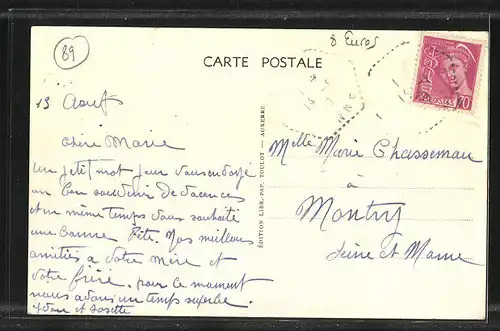 89
8 Euros
CARTE POSTALE
70
13 Aout
Chère Marie
un petit mot pour vous envoyé
un bon souvenir de vacances
et en même temps vous souhaité
une bonne fête. Mes meilleures
amitiés a votre mère et
votre frère. pour ce moment
nous avons un temps superbe
et Josette
ÉDITION LIBR.-PAP. TOULOT - AUXERRE
Melle Marie Chasseman
à
Montry
Seine et Marne